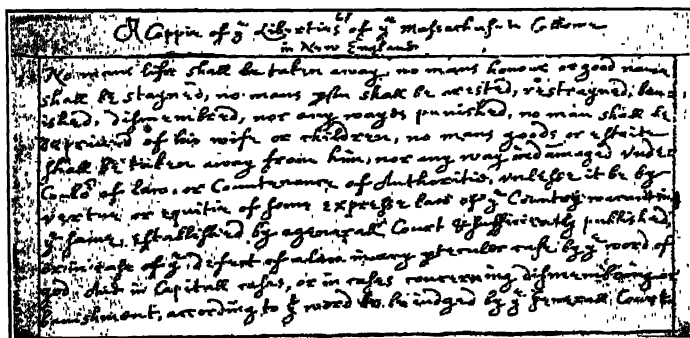 A Coppie of yᵉ Liberties of yᵉ Massachusets Collonie
in New England
No mans life shall be taken away, no mans honour or good name
shall be stayned, no mans pson shall be arested, restrayned, ban-
ished, dismembred, nor any wayes punished, no man shall be
deprived of his wife or children, no mans goods or estaite
shall be taken away from him, nor any way indamaged under
Coulor of law, or Countenance of Authoritie, unlesse it be by
vertue or equitie of some expresse law of yᵉ Country warranting
yᵉ same, established by a generall Court & sufficiently published,
or in case of yᵉ defect of a law in any pteculer case by yᵉ word of
god. And in Capitall cases, or in cases concerning dismembring or
banishment, according to yᵗ word to be iudged by yᵉ generall Court